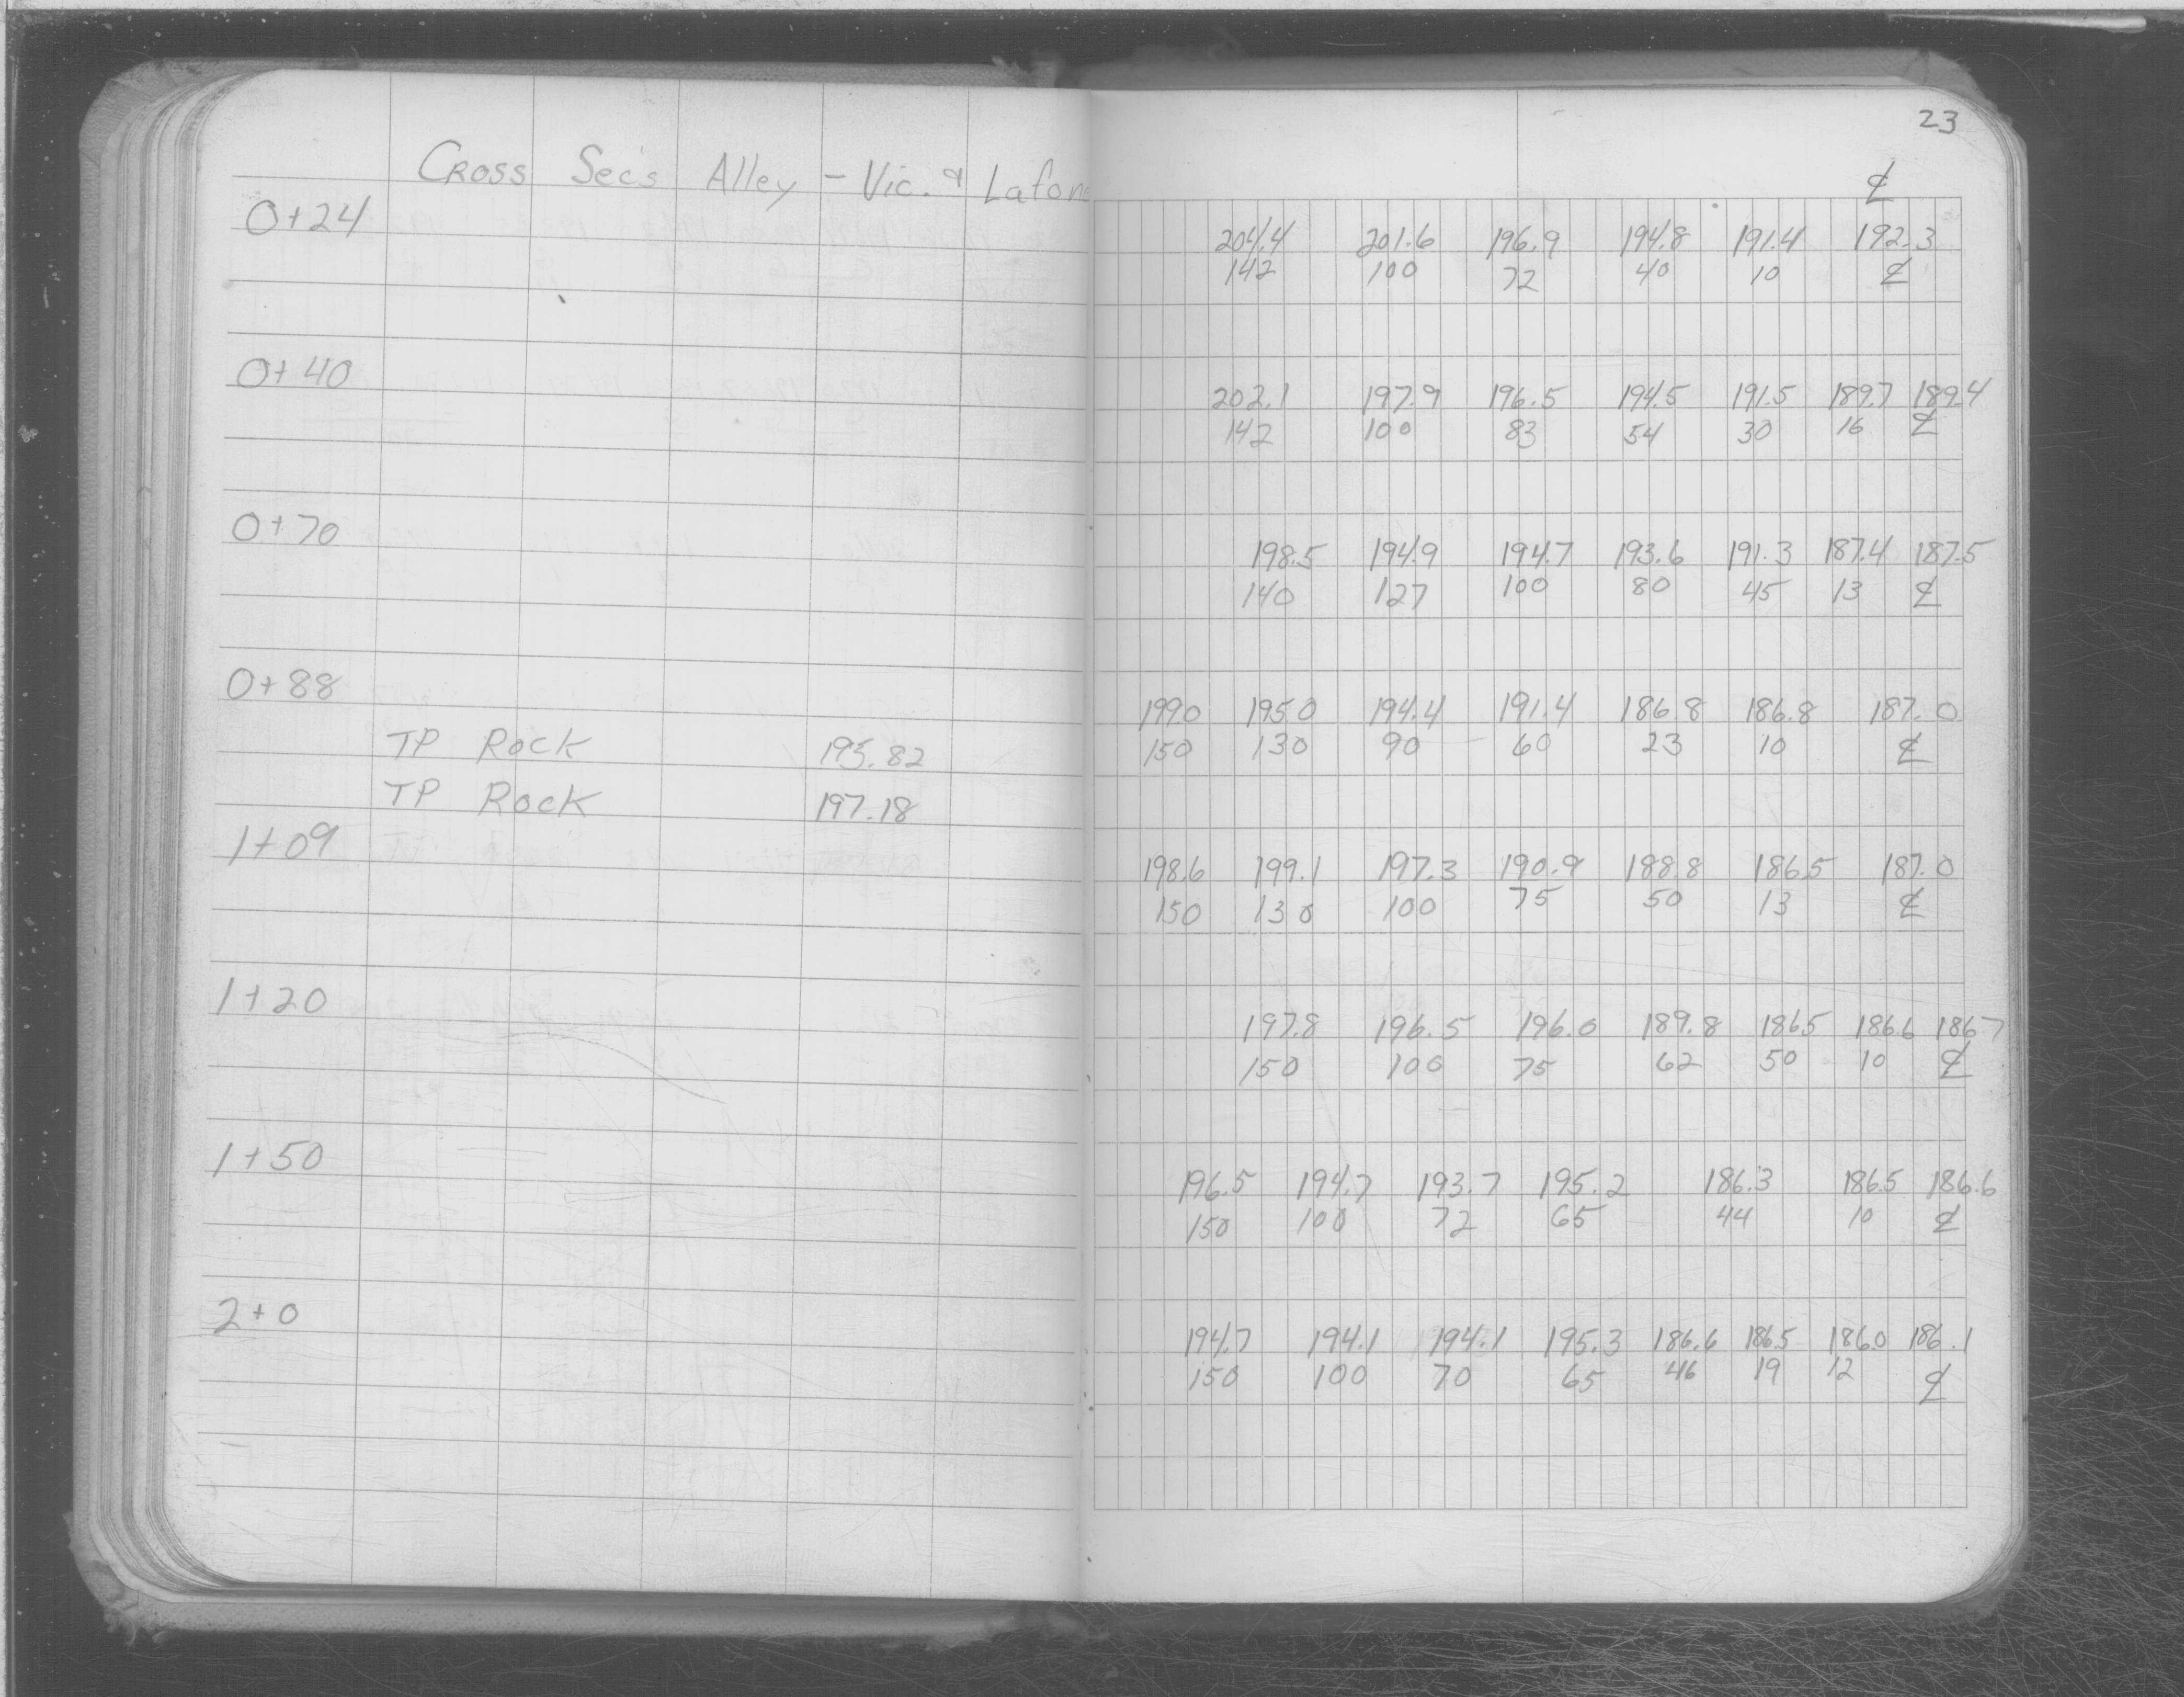 23
Cross Sec's Alley - Vic. & Lafon
℄
0+24 204.4 201.6 196.9 194.8 191.4 192.3
142 100 72 40 10 ℄
0+40 202.1 197.9 196.5 194.5 191.5 189.7 189.4
142 100 83 54 30 16 ℄
0+70 198.5 194.9 194.7 193.6 191.3 187.4 187.5
140 127 100 80 45 13 ℄
0+88 199.0 195.0 194.4 191.4 186.8 186.8 187.0
150 130 90 60 23 10 ℄
TP Rock 195.82
TP Rock 197.18
1+09 198.6 199.1 197.3 190.9 188.8 186.5 187.0
150 130 100 75 50 13 ℄
1+20 197.8 196.5 196.0 189.8 186.5 186.6 186.7
150 100 75 62 50 10 ℄
1+50 196.5 194.7 193.7 195.2 186.3 186.5 186.6
150 100 72 65 44 10 ℄
2+0 194.7 194.1 194.1 195.3 186.6 186.5 186.0 186.1
150 100 70 65 46 19 12 ℄